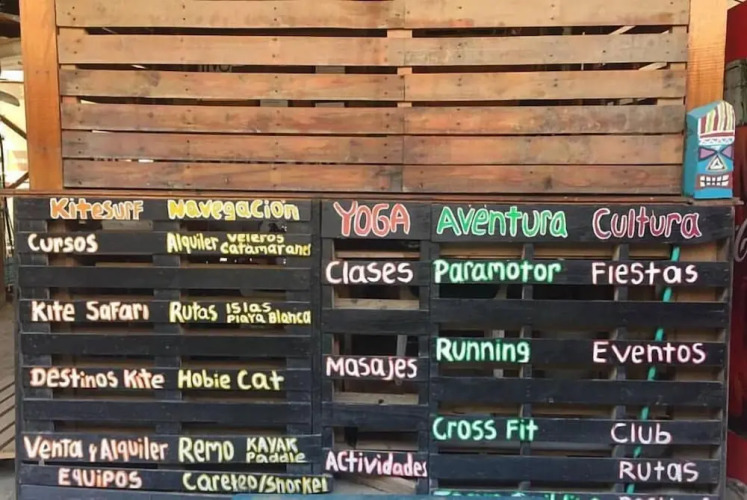 KiteSurf
Cursos
Kite Safari
Destinos Kite
Venta y Alquiler
Equipos
Navegacion
Alquiler veleros
catamaranes
Rutas Islas
Playa Blanca
Hobie Cat
Remo KAYAK
Paddle
Careteo/Snorkel
YOGA
Clases
Masajes
Actividades
Aventura
Paramotor
Running
Cross Fit
Cultura
Fiestas
Eventos
Club
Rutas